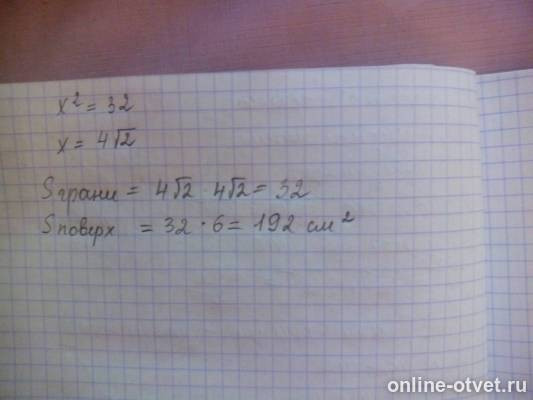 x² = 32
x = 4√2
Sграни = 4√2 · 4√2 = 32
Sповерх = 32 · 6 = 192 см²
online-otvet.ru